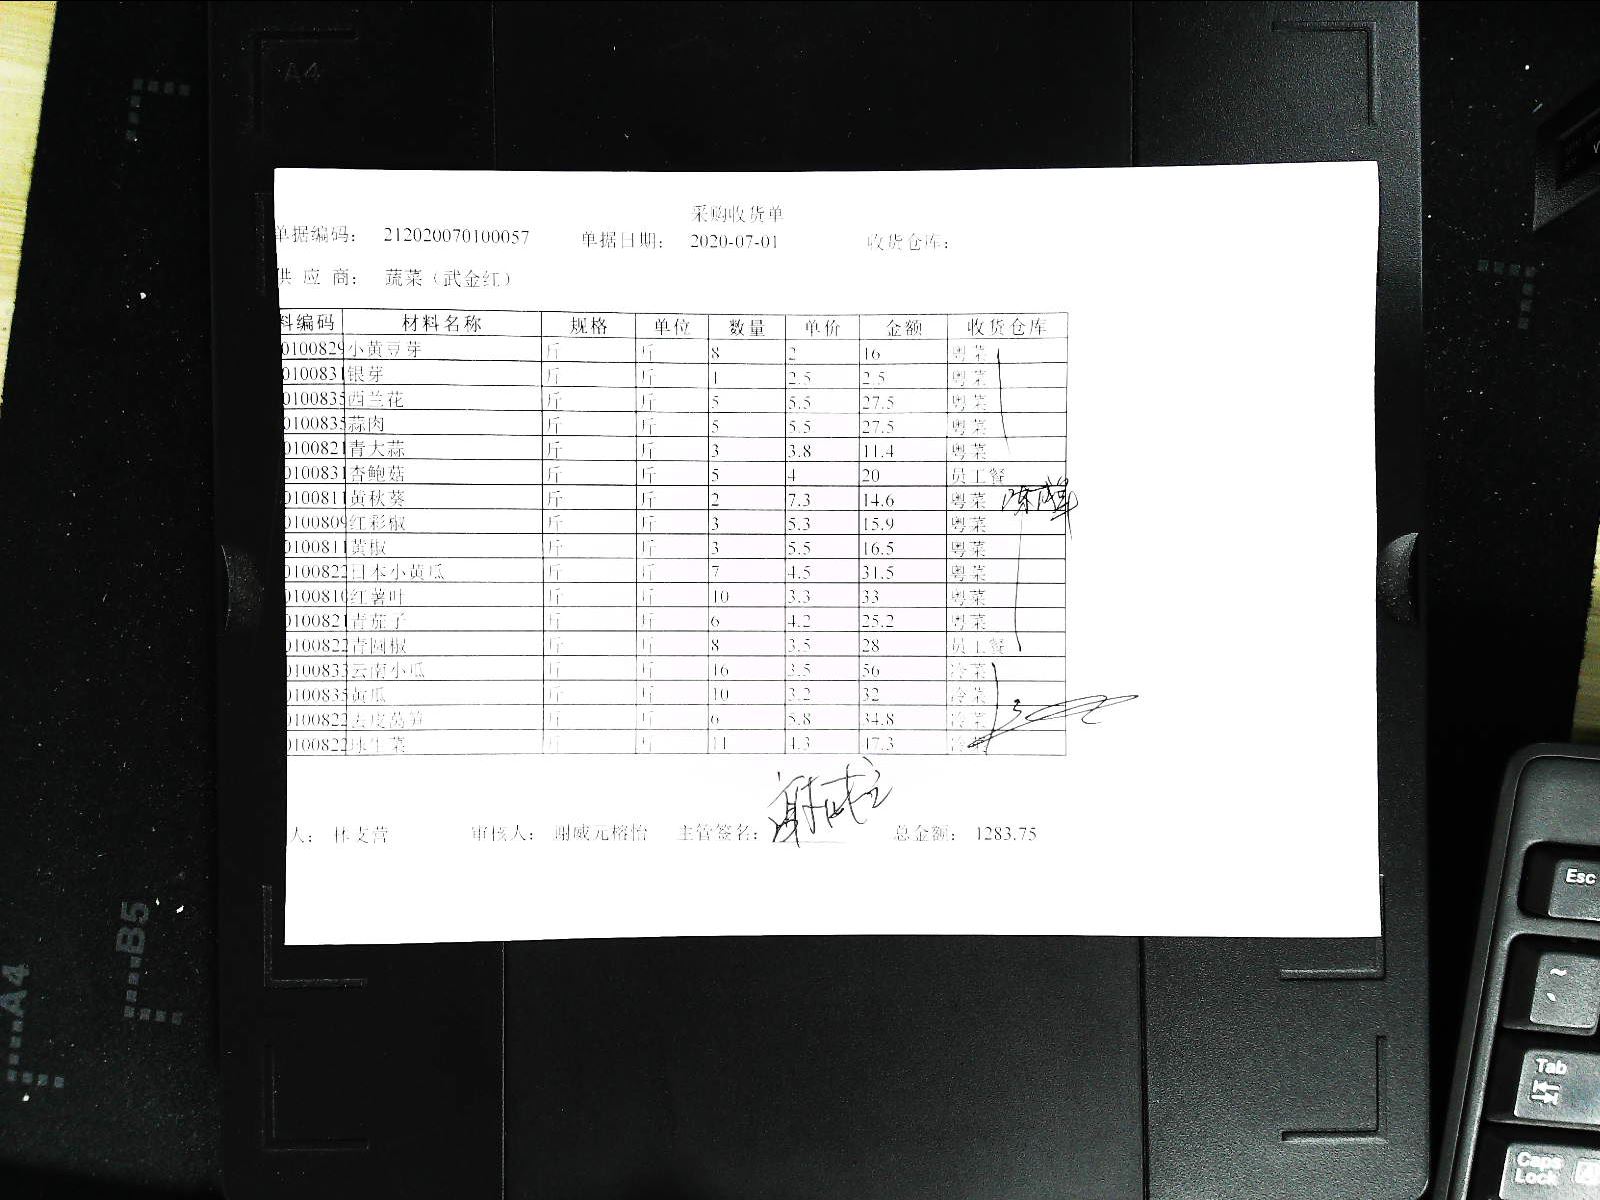 A4
采购收货单
单据编码： 212020070100057 单据日期： 2020-07-01 收货仓库：
供 应 商： 蔬菜（武金红）
料编码 材料名称 规格 单位 数量 单价 金额 收货仓库
0100829 小黄豆芽 斤 斤 8 2 16 粤菜
0100831 银芽 斤 斤 1 2.5 2.5 粤菜
0100835 西兰花 斤 斤 5 5.5 27.5 粤菜
0100835 蒜肉 斤 斤 5 5.5 27.5 粤菜
0100821 青大蒜 斤 斤 3 3.8 11.4 粤菜
0100831 杏鲍菇 斤 斤 5 4 20 员工餐
0100811 黄秋葵 斤 斤 2 7.3 14.6 粤菜
0100809 红彩椒 斤 斤 3 5.3 15.9 粤菜
0100811 黄椒 斤 斤 3 5.5 16.5 粤菜
0100822 日本小黄瓜 斤 斤 7 4.5 31.5 粤菜
0100810 红薯叶 斤 斤 10 3.3 33 粤菜
0100821 青茄子 斤 斤 6 4.2 25.2 粤菜
0100822 青圆椒 斤 斤 8 3.5 28 员工餐
0100833 云南小瓜 斤 斤 16 3.5 56 冷菜
0100835 黄瓜 斤 斤 10 3.2 32 冷菜
0100822 去皮莴笋 斤 斤 6 5.8 34.8 冷菜
0100822 球生菜 斤 斤 11 4.3 47.3 冷菜
人： 林支营 审核人： 谢威元榕怡 主管签名： 总金额： 1283.75
B5
A4
Esc
~
Tab
Caps Lock